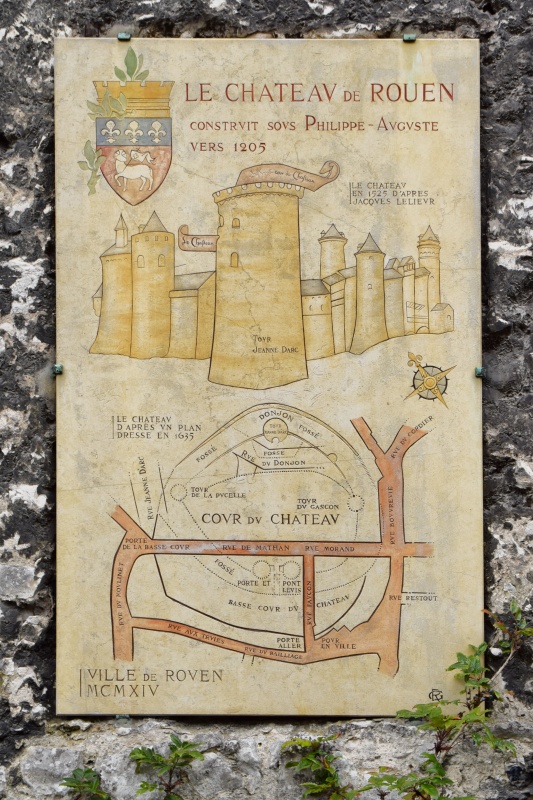 LE CHATEAV DE ROUEN
CONSTRVIT SOVS PHILIPPE-AVGVSTE
VERS 1205
LE CHATEAV
EN 1525 D'APRES
JACQVES LELIEVR
TOVR
JEANNE DARC
LE CHATEAV
D'APRES VN PLAN
DRESSE EN 1635
DONJON
FOSSÉ
FOSSÉ
FOSSE
RVE DV DONJON
RVE JEANNE DARC
TOVR
DE LA PVCELLE
TOVR
DV GASCON
COVR DV CHATEAV
RVE DV CORDIER
RVE BOUVREVIL
PORTE
DE LA BASSE COVR
RVE DE MATHAN
RVE MORAND
FOSSÉ
PORTE ET PONT
LEVIS
BASSE COVR DV CHATEAV
RVE FAVCON
RVE RESTOUT
RVE DV MOVLINET
RVE AUX IUVIFS
RVE DV BAILLIAGE
PORTE
ALLER
POVR
EN VILLE
VILLE DE ROVEN
MCMXIV